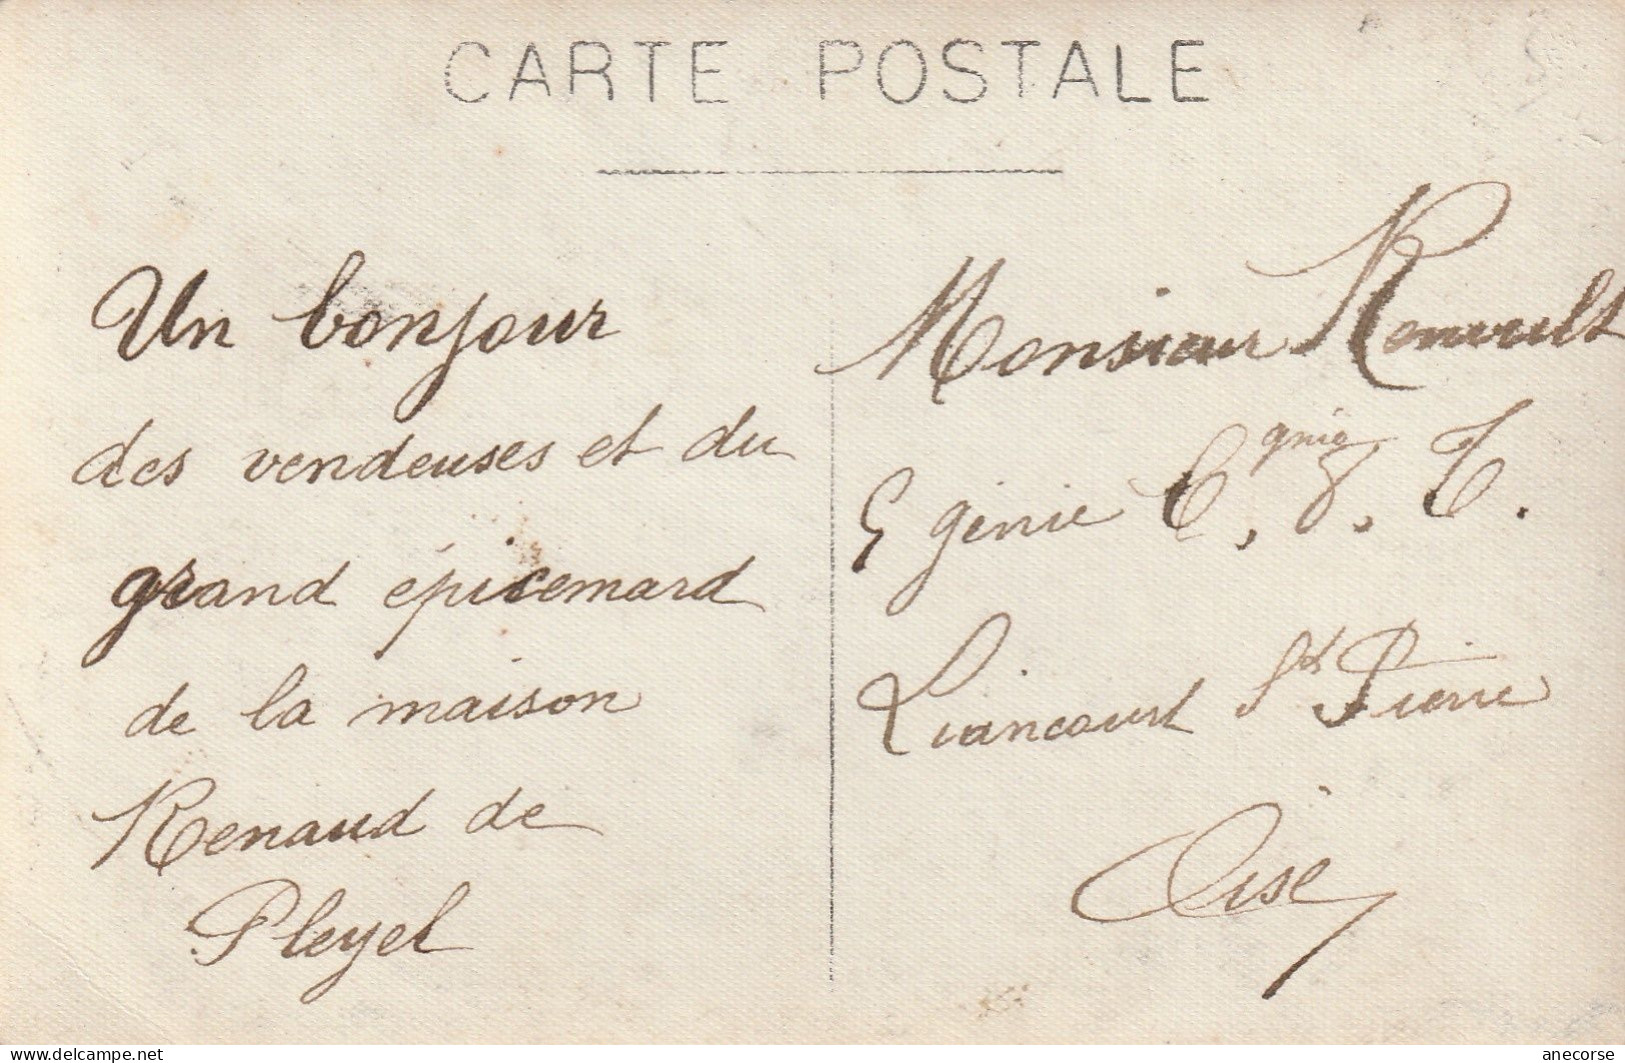 CARTE POSTALE
Un bonjour
des vendeuses et du
grand épicemard
de la maison
Renaud de
Pleyel
Monsieur Renault
génie C.gnie
T.
Liancourt St Pierre
Oise
delcampe.net
anecorse